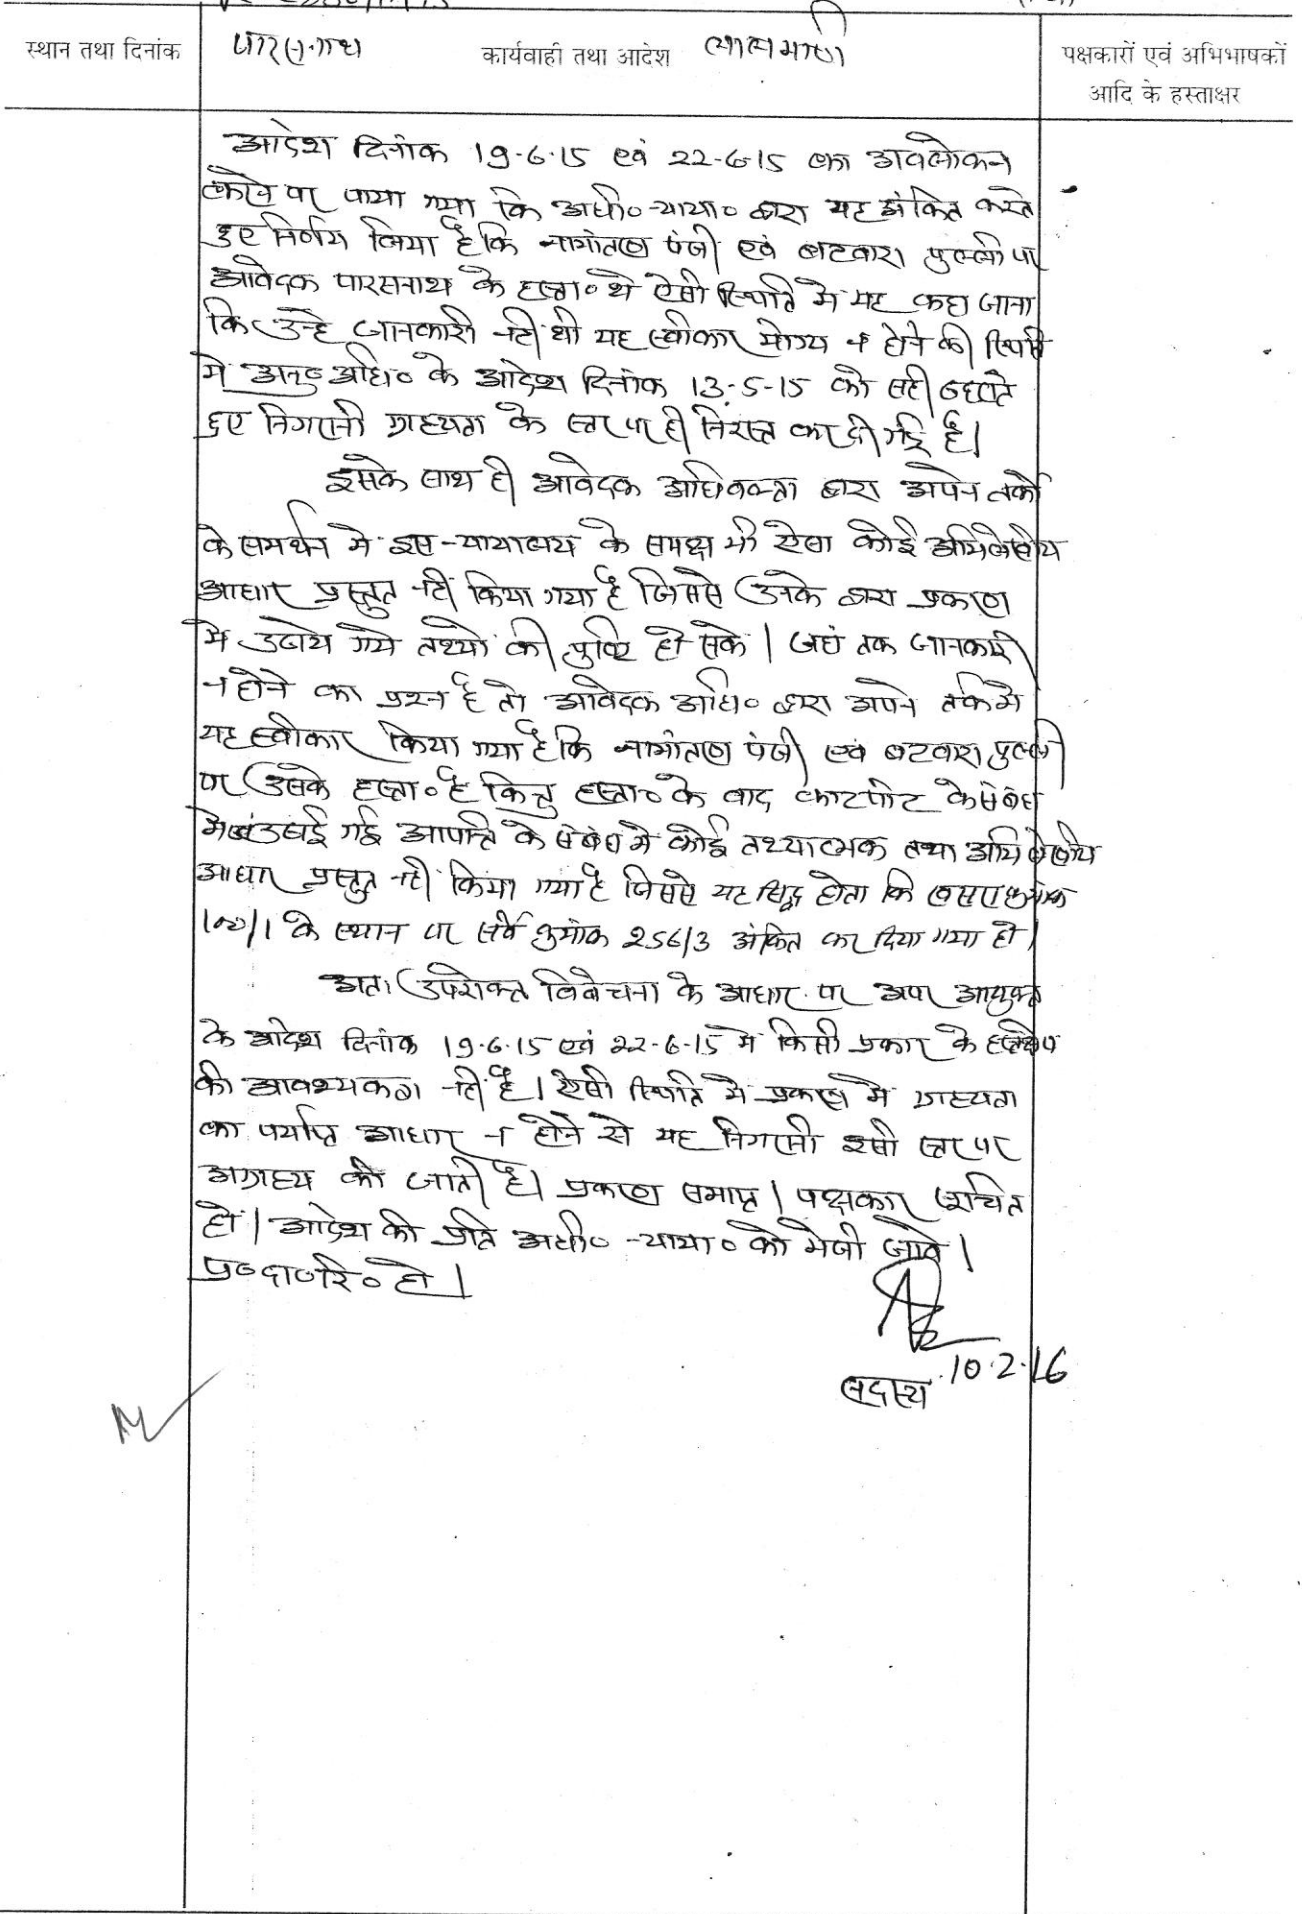 स्थान तथा दिनांक पारसनाथ कार्यवाही तथा आदेश लालमणी पक्षकारों एवं अभिभाषकों
आदि के हस्ताक्षर
आदेश दिनांक 19-6-15 एवं 22-6-15 का अवलोकन
करने पर पाया गया कि अधी० न्याया० द्वारा यह अंकित करते
हुए निर्णय लिया है कि नामांतरण पंजी एवं बटवारा पुल्ली पर
आवेदक पारसनाथ के हस्ता० थे ऐसी स्थिति में यह कहा जाना
कि उन्हे जानकारी नहीं थी यह स्वीकार योग्य न होने की स्थिति
में अनु० अधि० के आदेश दिनांक 13-5-15 को सही ठहराते
हुए निगरानी ग्राह्यता के स्तर पर ही निरस्त कर दी गई है।
इसके साथ ही आवेदक अधिवक्ता द्वारा अपने तर्को
के समर्थन में इस न्यायालय के समक्ष भी ऐसा कोई अभिलेखीय
आधार प्रस्तुत नहीं किया गया है जिससे उनके द्वारा प्रकरण
में उठाये गये तथ्यों की पुष्टि हो सके। जहां तक जानकारी
न होने का प्रश्न है तो आवेदक अधि० द्वारा अपने तर्क में
यह स्वीकार किया गया है कि नामांतरण पंजी एवं बटवारा पुल्ली
पर उसके हस्ता० है किन्तु हस्ता० के बाद काटपीट के संबंध
में उठाई गई आपत्ति के संबंध में कोई तथ्यात्मक तथा अभिलेखीय
आधार प्रस्तुत नहीं किया गया है जिससे यह सिद्ध होता कि खसरा क्रमांक
के स्थान पर सर्वे क्रमांक 256/3 अंकित कर दिया गया हो।
अतः उपरोक्त विवेचना के आधार पर अपर आयुक्त
के आदेश दिनांक 19-6-15 एवं 22-6-15 में किसी प्रकार के हस्तक्षेप
की आवश्यकता नहीं है। ऐसी स्थिति में प्रकरण में ग्राह्यता
का पर्याप्त आधार न होने से यह निगरानी इसी स्तर पर
अग्राह्य की जाती है। प्रकरण समाप्त। पक्षकार सूचित
हो। आदेश की प्रति अधी० न्याया० को भेजी जावे।
प्र० दा० रि० हो।
10.2.16
सदस्य